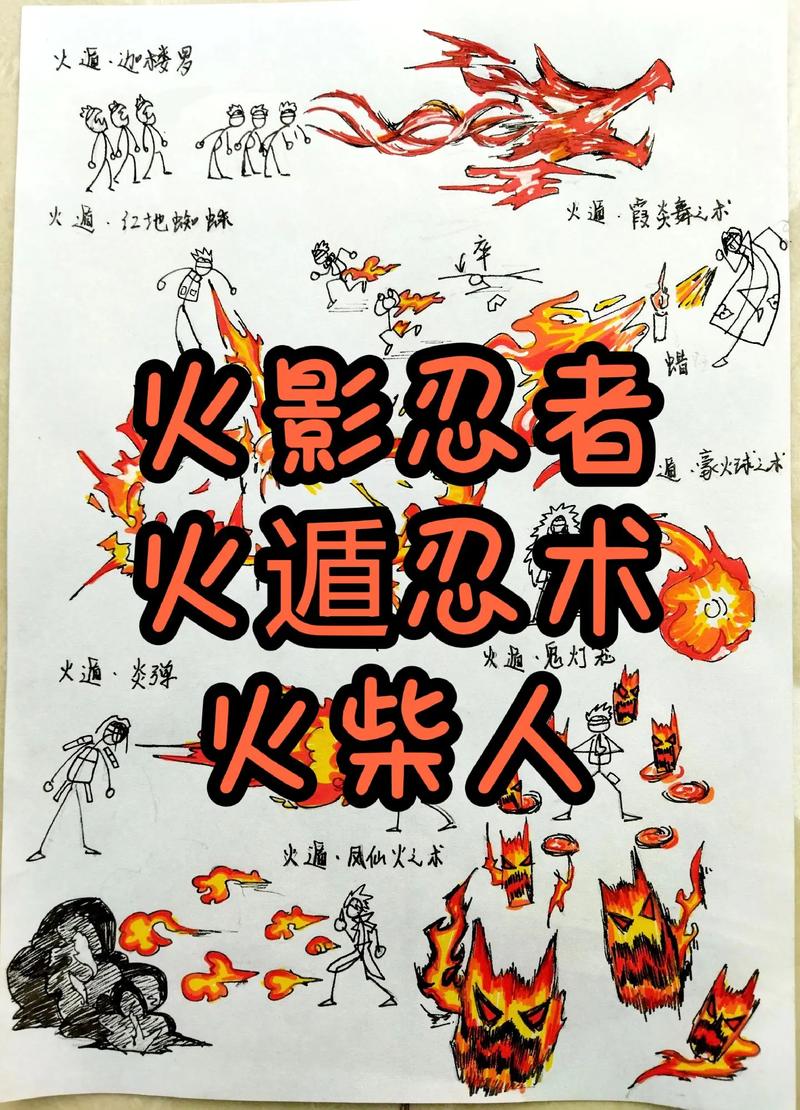 火遁·迦楼罗
火遁·红地蜘蛛
火遁·霞炎舞之术
卒
蜡
火影忍者
遁·豪火球之术
火遁忍术
火遁·炎弹
火遁·鬼灯笼
火柴人
火遁·凤仙火之术